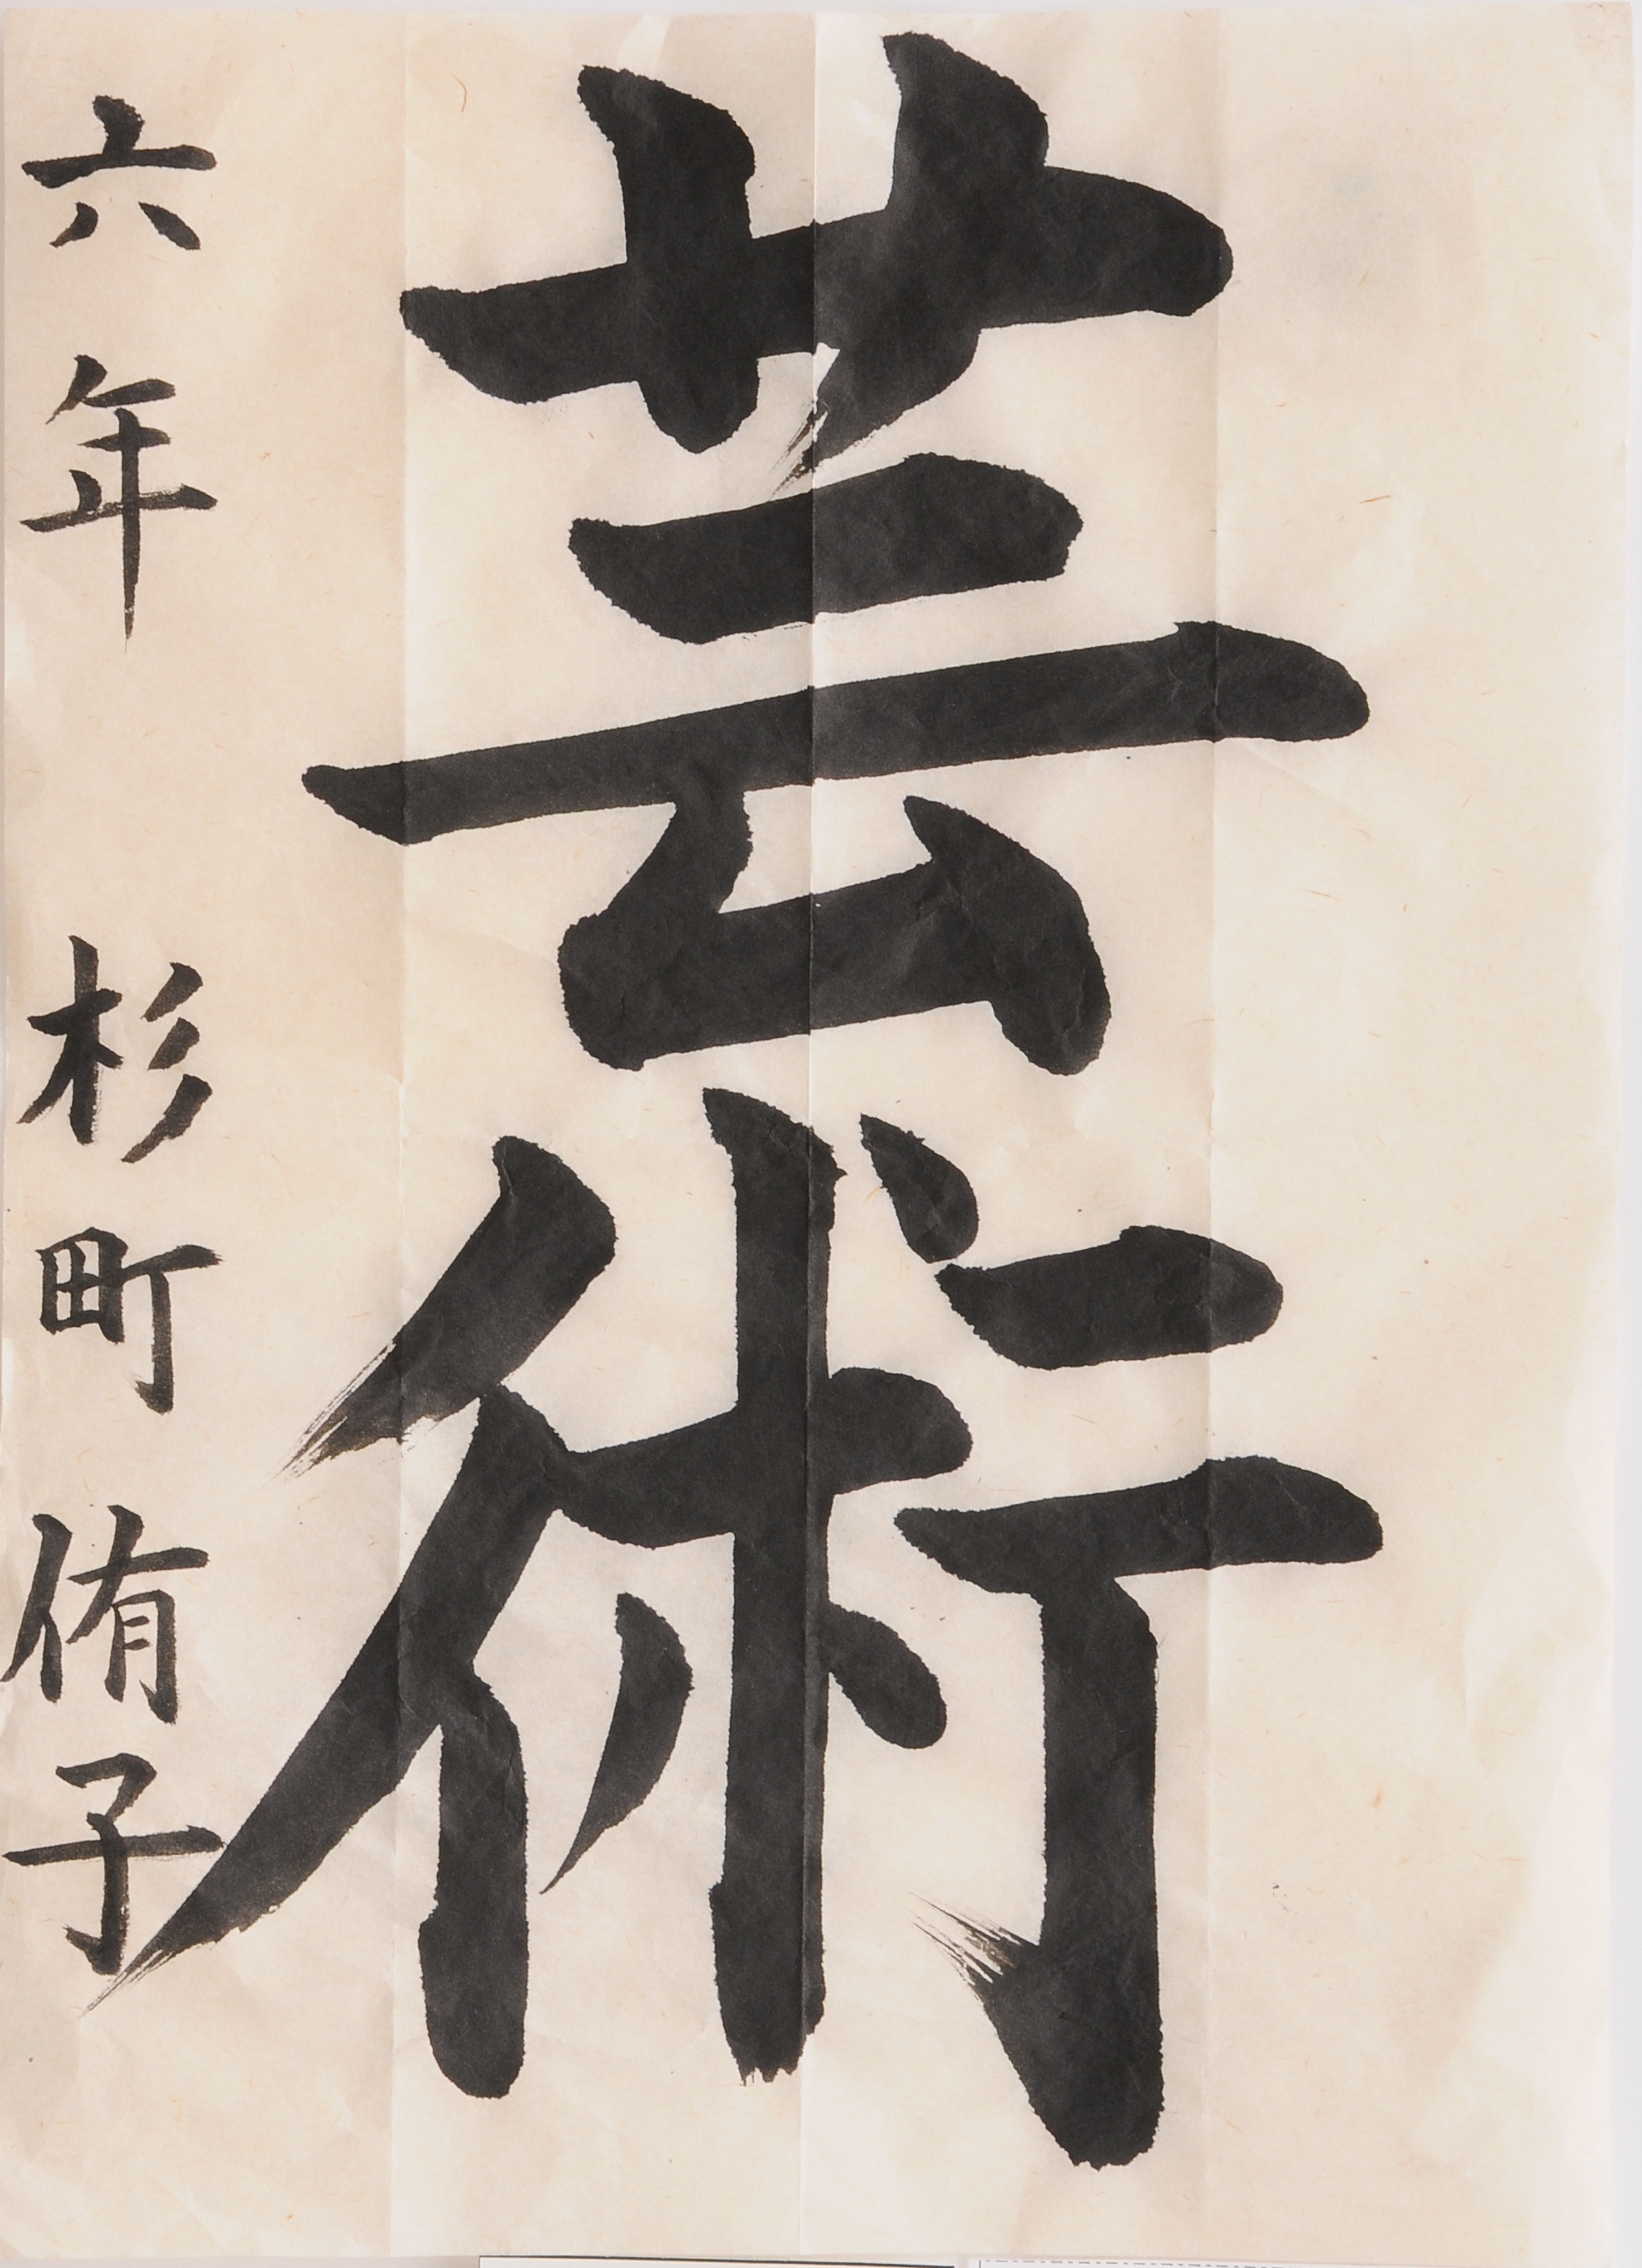 芸術
六年 杉町侑子